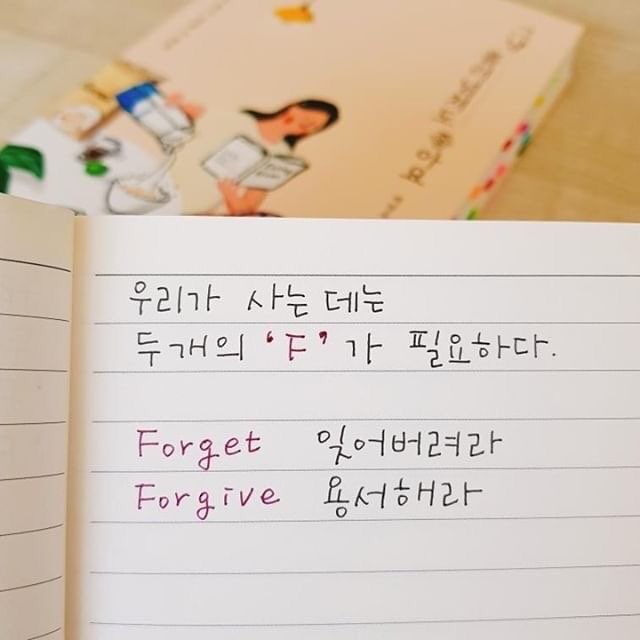 우리가 사는 데는
두 개의 'F'가 필요하다.
Forget 잊어버려라
Forgive 용서해라